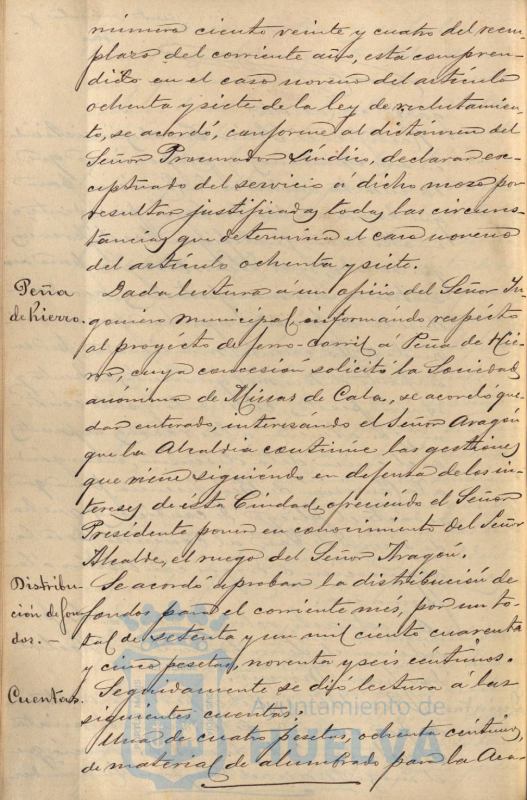 número ciento veinte y cuatro del reem-
plazo del corriente año, está compren-
dido en el caso noveno del artículo
ochenta y siete de la ley de reclutamien-
to, se acordó, conforme al dictámen del
Señor Procurador Síndico, declarar ex-
ceptuado del servicio á dicho mozo por
resultar justificadas todas las circuns-
tancias que determina el caso noveno
del artículo ochenta y siete.
Peña
de hierro.
Dada lectura á un oficio del Señor In-
geniero municipal informando respecto
al proyecto de ferro-carril á Peña de Hie-
rro, cuya concesión solicitó la Sociedad
anónima de Minas de Cala, se acordó que-
dar enterado, interesando el Señor Aragón
que la Alcaldia continúe las gestiones
que viene siguiendo en defensa de los in-
tereses de ésta Ciudad, ofreciendo el Señor
Presidente poner en conocimiento del Señor
Alcalde, el ruego del Señor Aragón.
Distribu-
ción de fon-
dos. -
Se acordó aprobar la distribución de
fondos para el corriente més, por un to-
tal de setenta y un mil ciento cuarenta
y cinco pesetas, noventa y seis céntimos.
Cuentas.
Seguidamente se dió lectura á las
siguientes cuentas.
Una de cuatro pesetas, ochenta céntimos,
de material de alumbrado para la Aca-
Ayuntamiento de
HUELVA